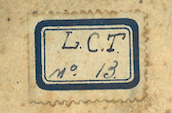 L. C. T.
No. 13.